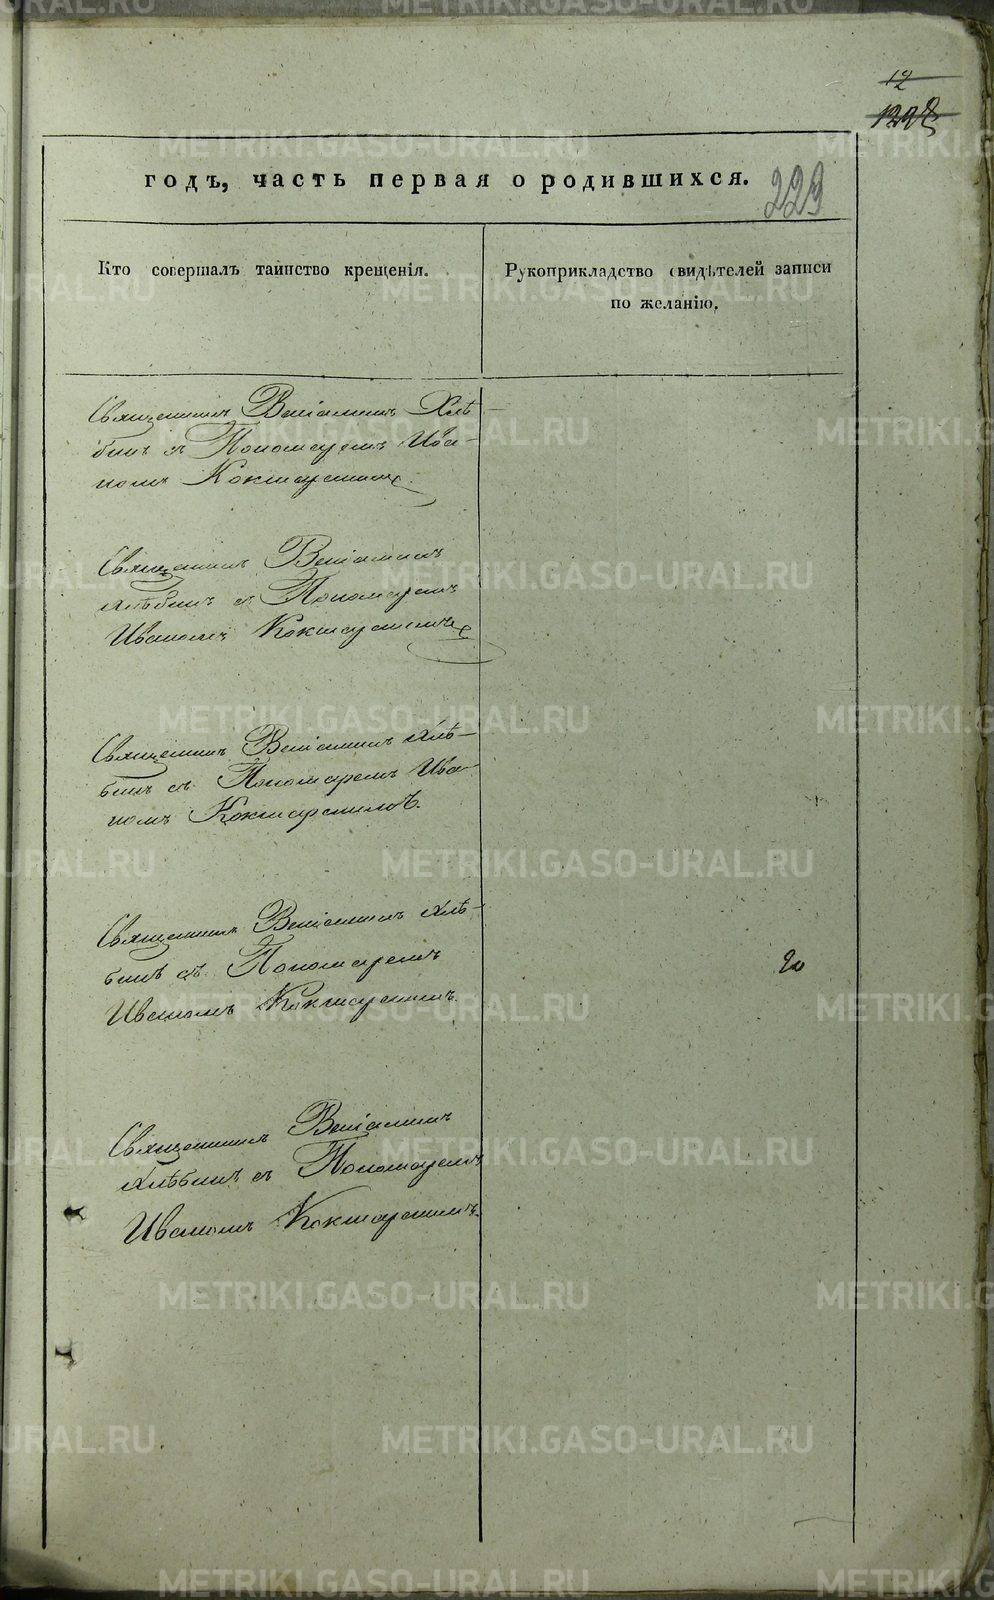 12
223
годъ, часть первая о родившихся.
Кто совершалъ таинство крещенія.
Рукоприкладство свидѣтелей записи
по желанію.
Священникъ Веніаминъ Хлѣ-
бинъ съ Пономаремъ Ива-
номъ Кокшарскимъ
Священникъ Веніаминъ
Хлѣбинъ съ Пономаремъ
Иваномъ Кокшарскимъ
Священникъ Веніаминъ Хлѣ-
бинъ съ Пономаремъ Ива-
номъ Кокшарскимъ.
Священникъ Веніаминъ Хлѣ-
бинъ съ Пономаремъ
Иваномъ Кокшарскимъ.
Священникъ Веніаминъ
Хлѣбинъ съ Пономаремъ
Иваномъ Кокшарскимъ.
METRIKI.GASO-URAL.RU